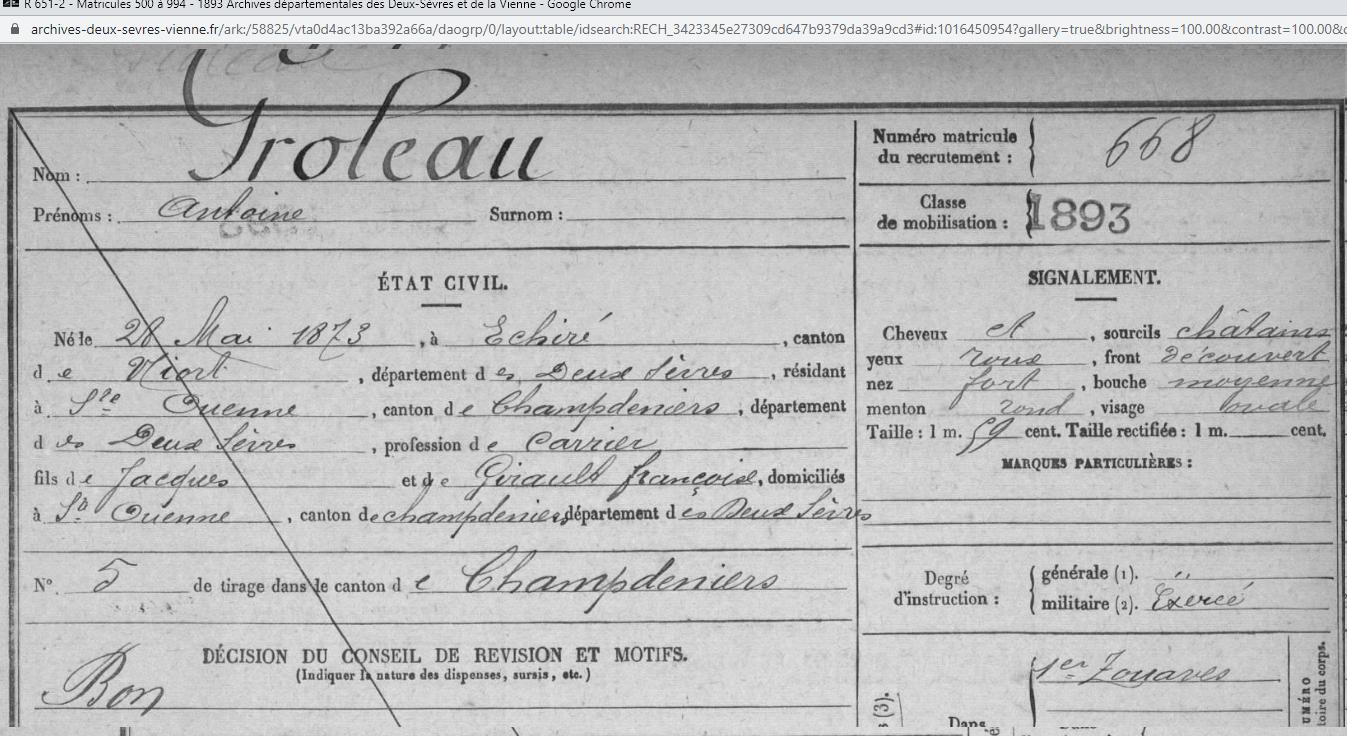 R 651-2 - Matricules 500 à 994 - 1893 Archives départementales des Deux-Sèvres et de la Vienne - Google Chrome
archives-deux-sevres-vienne.fr/ark:/58825/vta0d4ac13ba392a66a/daogrp/0/layout:table/idsearch:RECH_3423345e27309cd647b9379da39a9cd3#id:1016450954?gallery=true&brightness=100.00&contrast=100.00&c
Nom : Groleau
Prénoms : Antoine Surnom :
Numéro matricule du recrutement : 668
Classe de mobilisation : 1893
ÉTAT CIVIL.
Né le 28 Mai 1873, à Echiré, canton
de Niort, département des Deux Sèvres, résidant
à Ste Ouenne, canton de Champdeniers, département
des Deux Sèvres, profession de Carrier
fils de Jacques et de Girault françoise, domiciliés
à Ste Ouenne, canton de champdeniers, département des Deux Sèvres
N°. 5 de tirage dans le canton de Champdeniers
DÉCISION DU CONSEIL DE REVISION ET MOTIFS.
(Indiquer la nature des dispenses, sursis, etc.)
Bon
SIGNALEMENT.
Cheveux et, sourcils châtains
yeux roux, front découvert
nez fort, bouche moyenne
menton rond, visage ovale
Taille : 1 m. 59 cent. Taille rectifiée : 1 m. cent.
MARQUES PARTICULIÈRES :
Degré d'instruction :
générale (1).
militaire (2). Exercé
1er Zouaves
(3).
Dans
NUMÉRO
toire du corps.